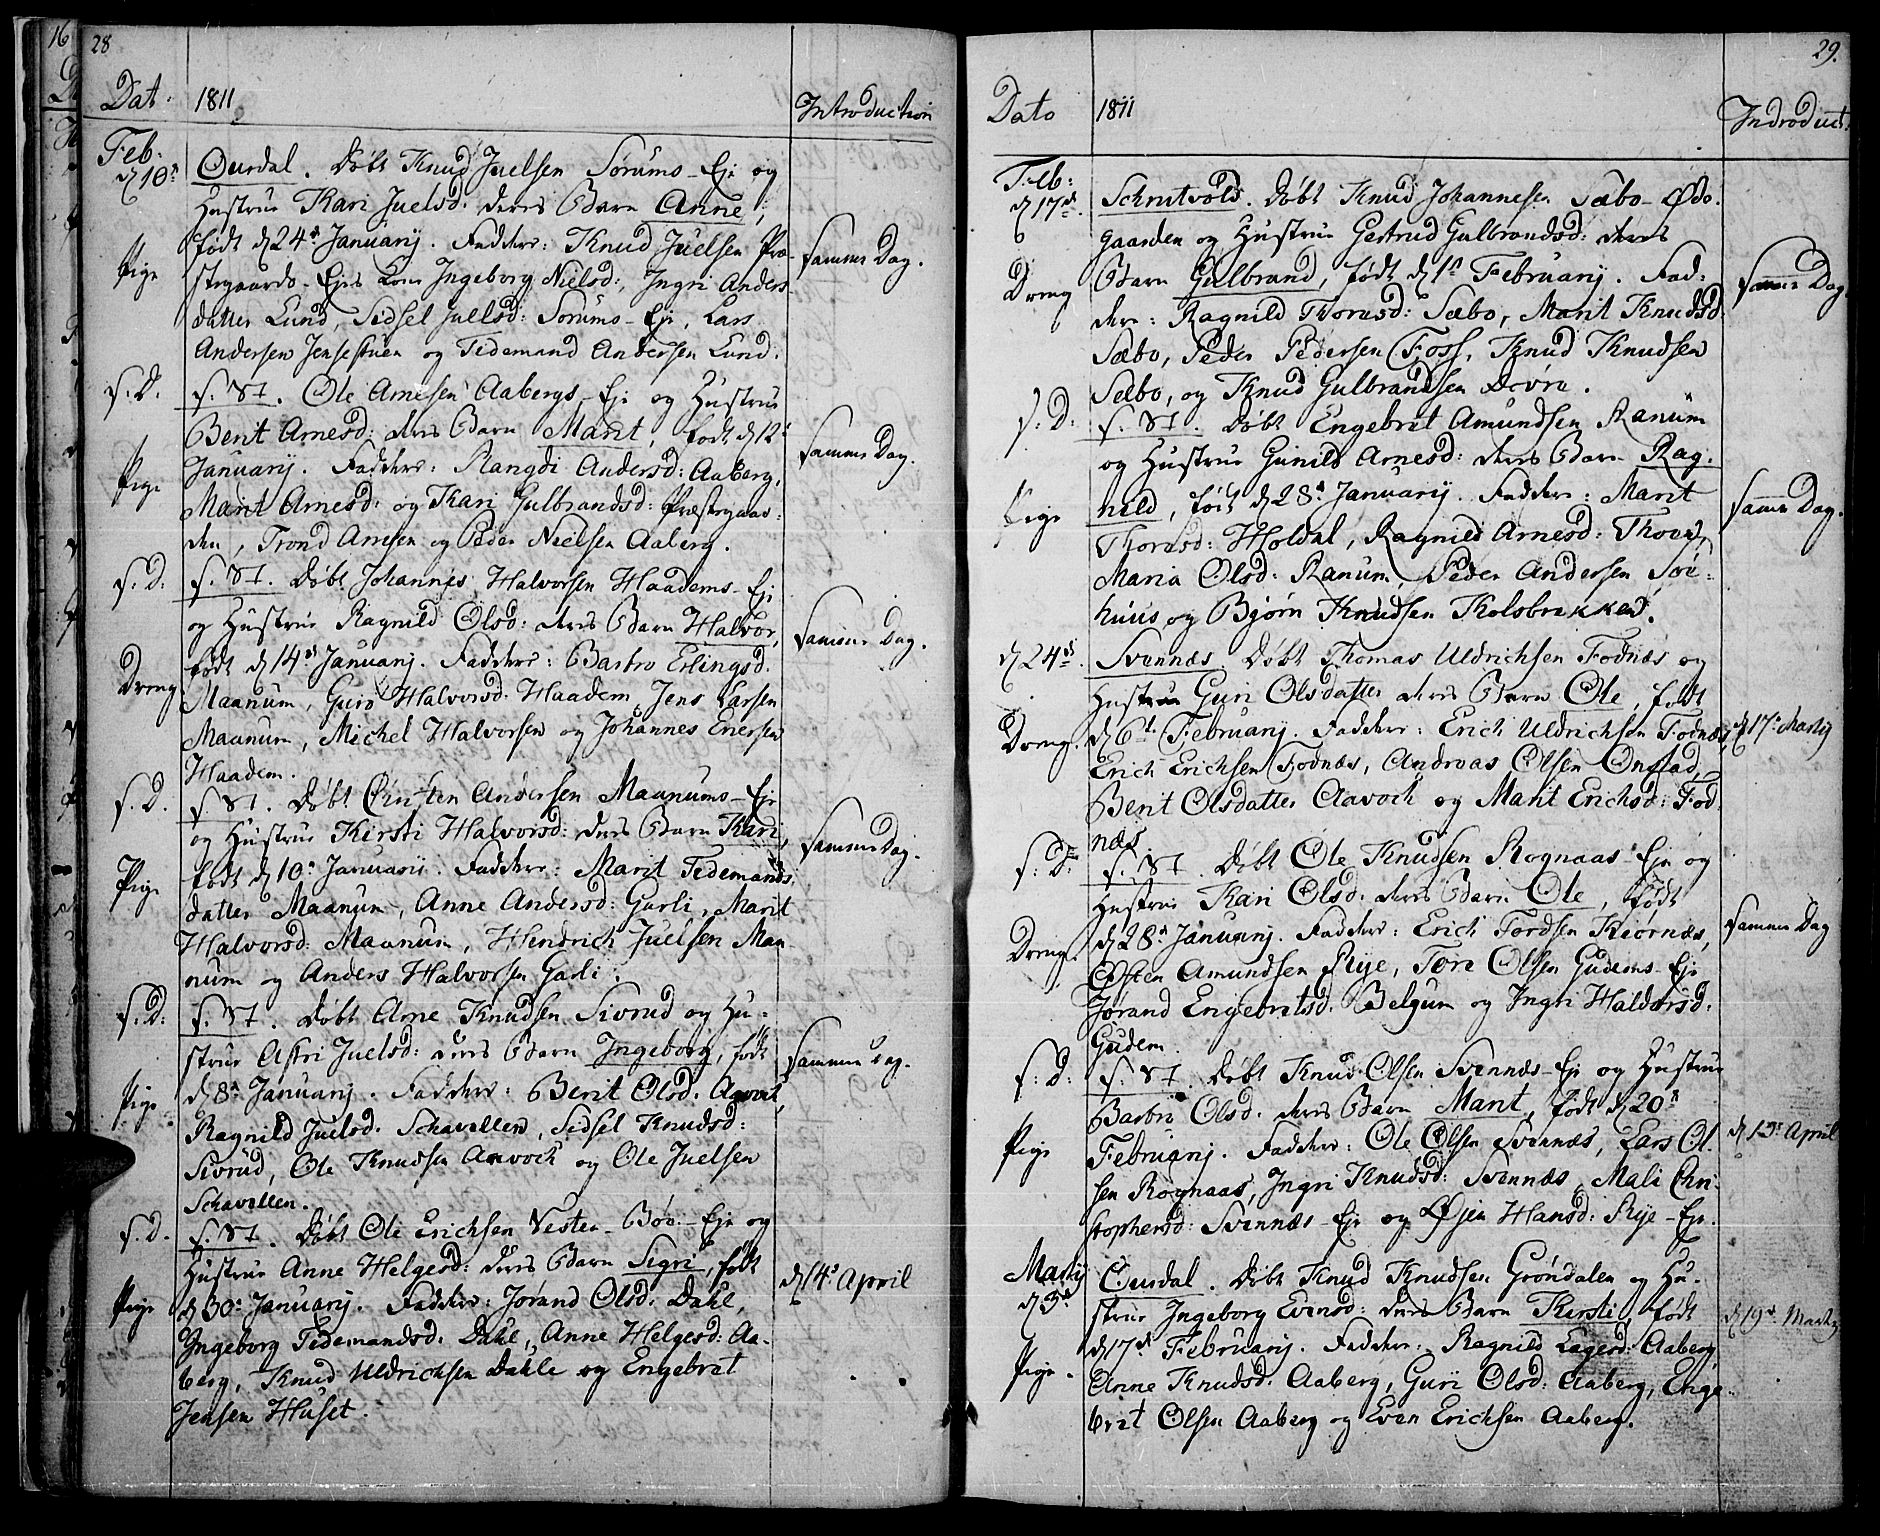 16
28
Dat: 1811 Introduction
Feb:
d 10de Ourdal. Døbt Knud Juelsen Sørums-Eje og
Hustrue Kari Juelsd: deres Barn Anne,
født d 24de Januarij. Faddere: Knud Juelsen Præ-
Pige stegaards-Ejes Kone Ingeborg Nielsd:, Ingri Anders Samme Dag.
datter Lund, Sidsel Juelsd: Sørums-Eje, Lars
Andersen Jensestuen og Tidemand Andersen Lund.
s. D. s. St. Ole Arnesen Aabergs-Eje og Hustrue
Berit Arnesd: deres Barn Marit, født d 12
Pige Januarij. Faddere: Rangdi Andersd: Aaberg, Samme Dag.
Marit Arnesd: og Kari Gulbrandsd: Præstegaar-
den, Trond Arnesen og Peder Nielsen Aaberg.
s. D: s. St. Døbt Johannes Halvorsen Haadems-Eje
og Hustrue Ragnild Olsd: deres Barn Halvor, Samme Dag.
Dreng født d 14de Januarij. Faddere: Barbro Erlingsd.
Maanum, Guro Halvorsd: Haadem, Jens Larsen
Maanum, Michel Halvorsen og Johannes Enersen
Haadem.
s. D. s. St. Døbt Christen Andersen Maanums-Eje
og Hustrue Kirsti Halvorsd: deres Barn Kari, Samme Dag.
Pige født d 10de Januarii. Faddere: Marit Tidemands
datter Maanum, Anne Andersd: Garli, Marit
Halvorsd: Maanum, Hendrich Juelsen Maa-
num og Anders Halvorsen Garli.
s. D: s. St. Døbt Arne Knudsen Sivrud og Hu-
strue Astri Juelsd: deres Barn Ingeborg, født Samme Dag.
Pige d 8de Januarij. Faddere: Berit Olsd. Aavoch,
Ragnild Juelsd. Schavellen, Sidsel Knudsd:
Sivrud, Ole Knudsen Aavoch og Ole Juelsen
Schavellen.
s. D. s. St. Døbt Ole Erichsen Vesten-Bøe-Eje og
Hustrue Anne Helgesd: deres Barn Sigri, født d 14de April
Pige d 30te Januarij. Faddere: Jørand Olsd: Dahl,
Ingeborg Tidemandsd. Dahl, Anne Helgesd: Aa-
berg, Knud Uldrichsen Dahle og Engebret
Jensen Huset.
29.
Dato 1811 Indroduct.
Feb:
d 17de Schrutvold. Døbt Knud Johannesen Sæbo-Øde-
gaarden og Hustrue Gertrud Gulbrandsd: deres
Dreng Barn Gulbrand, født d 1ste Februarij. Fad- Samme Dag
dere: Ragnild Thoresd: Sæbo, Marit Knudsd
Sæbo, Peder Pedersen Foss, Knud Knudsen
Sæbo, og Knud Gulbrandsen Døvre.
s. D: s. St. Døbt Engebret Amundsen Ranum
og Hustrue Gunild Arnesd: deres Barn Rag-
Pige nild, født d 28de Januarij. Faddere: Marit Samme Dag.
Thoresd: Holdal, Ragnild Arnesd: Thove,
Maria Olsd: Ranum, Peder Andersen Soe-
huus og Bjørn Knudsen Kolsbrekken.
d 24de Svennæs. Døbt Thomas Uldrichsen Fodnæs og
Hustrue Guri Olsdatter deres Barn Ole, født
Dreng. d 6te Februarij. Faddere: Erich Uldrichsen Fodnæs, d 17de Martij
Erich Erichsen Fodnæs, Andreas Olsen Onstad,
Berit Olsdatter Aavoch og Marit Erichsd: Fod-
næs.
s: D: s. St. Døbt Ole Knudsen Rognaas Eje og
Hustrue Kari Olsd: deres Barn Ole, født
Dreng d 28de Januarij. Faddere: Erich Tordsen Kiørnæs, Samme Dag
Østen Amundsen Rye, Tore Olsen Gudems-Eje
Jørand Engebretsd. Belgum og Ingri Haldorsd:
Gudem.
s: D: s. St. Døbt Knud Olsen Svennæs-Eje og Hustrue
Barbro Olsd. deres Barn Marit, født d 20de
Pige Februarij. Faddere: Ole Olsen Svennæs, Lars Ol- d 15de April
sen Rognaas, Ingri Knudsd: Svennæs, Mali Chri-
stophersd: Svennæs-Eje og Øjen Hansd: Rye-Eje.
Martij
d 3de Ourdal. Døbt Knud Knudsen Grøndalen og Hu-
strue Ingeborg Evensd: deres Barn Kirsti, født d 19de Martij
Pige. d 17de Februarij. Faddere: Ragnild Lagesd: Aaberg,
Anne Knudsd. Aaberg, Guri Olsd: Aaberg, Enge-
bret Olsen Aaberg og Even Erichsen Aaberg.